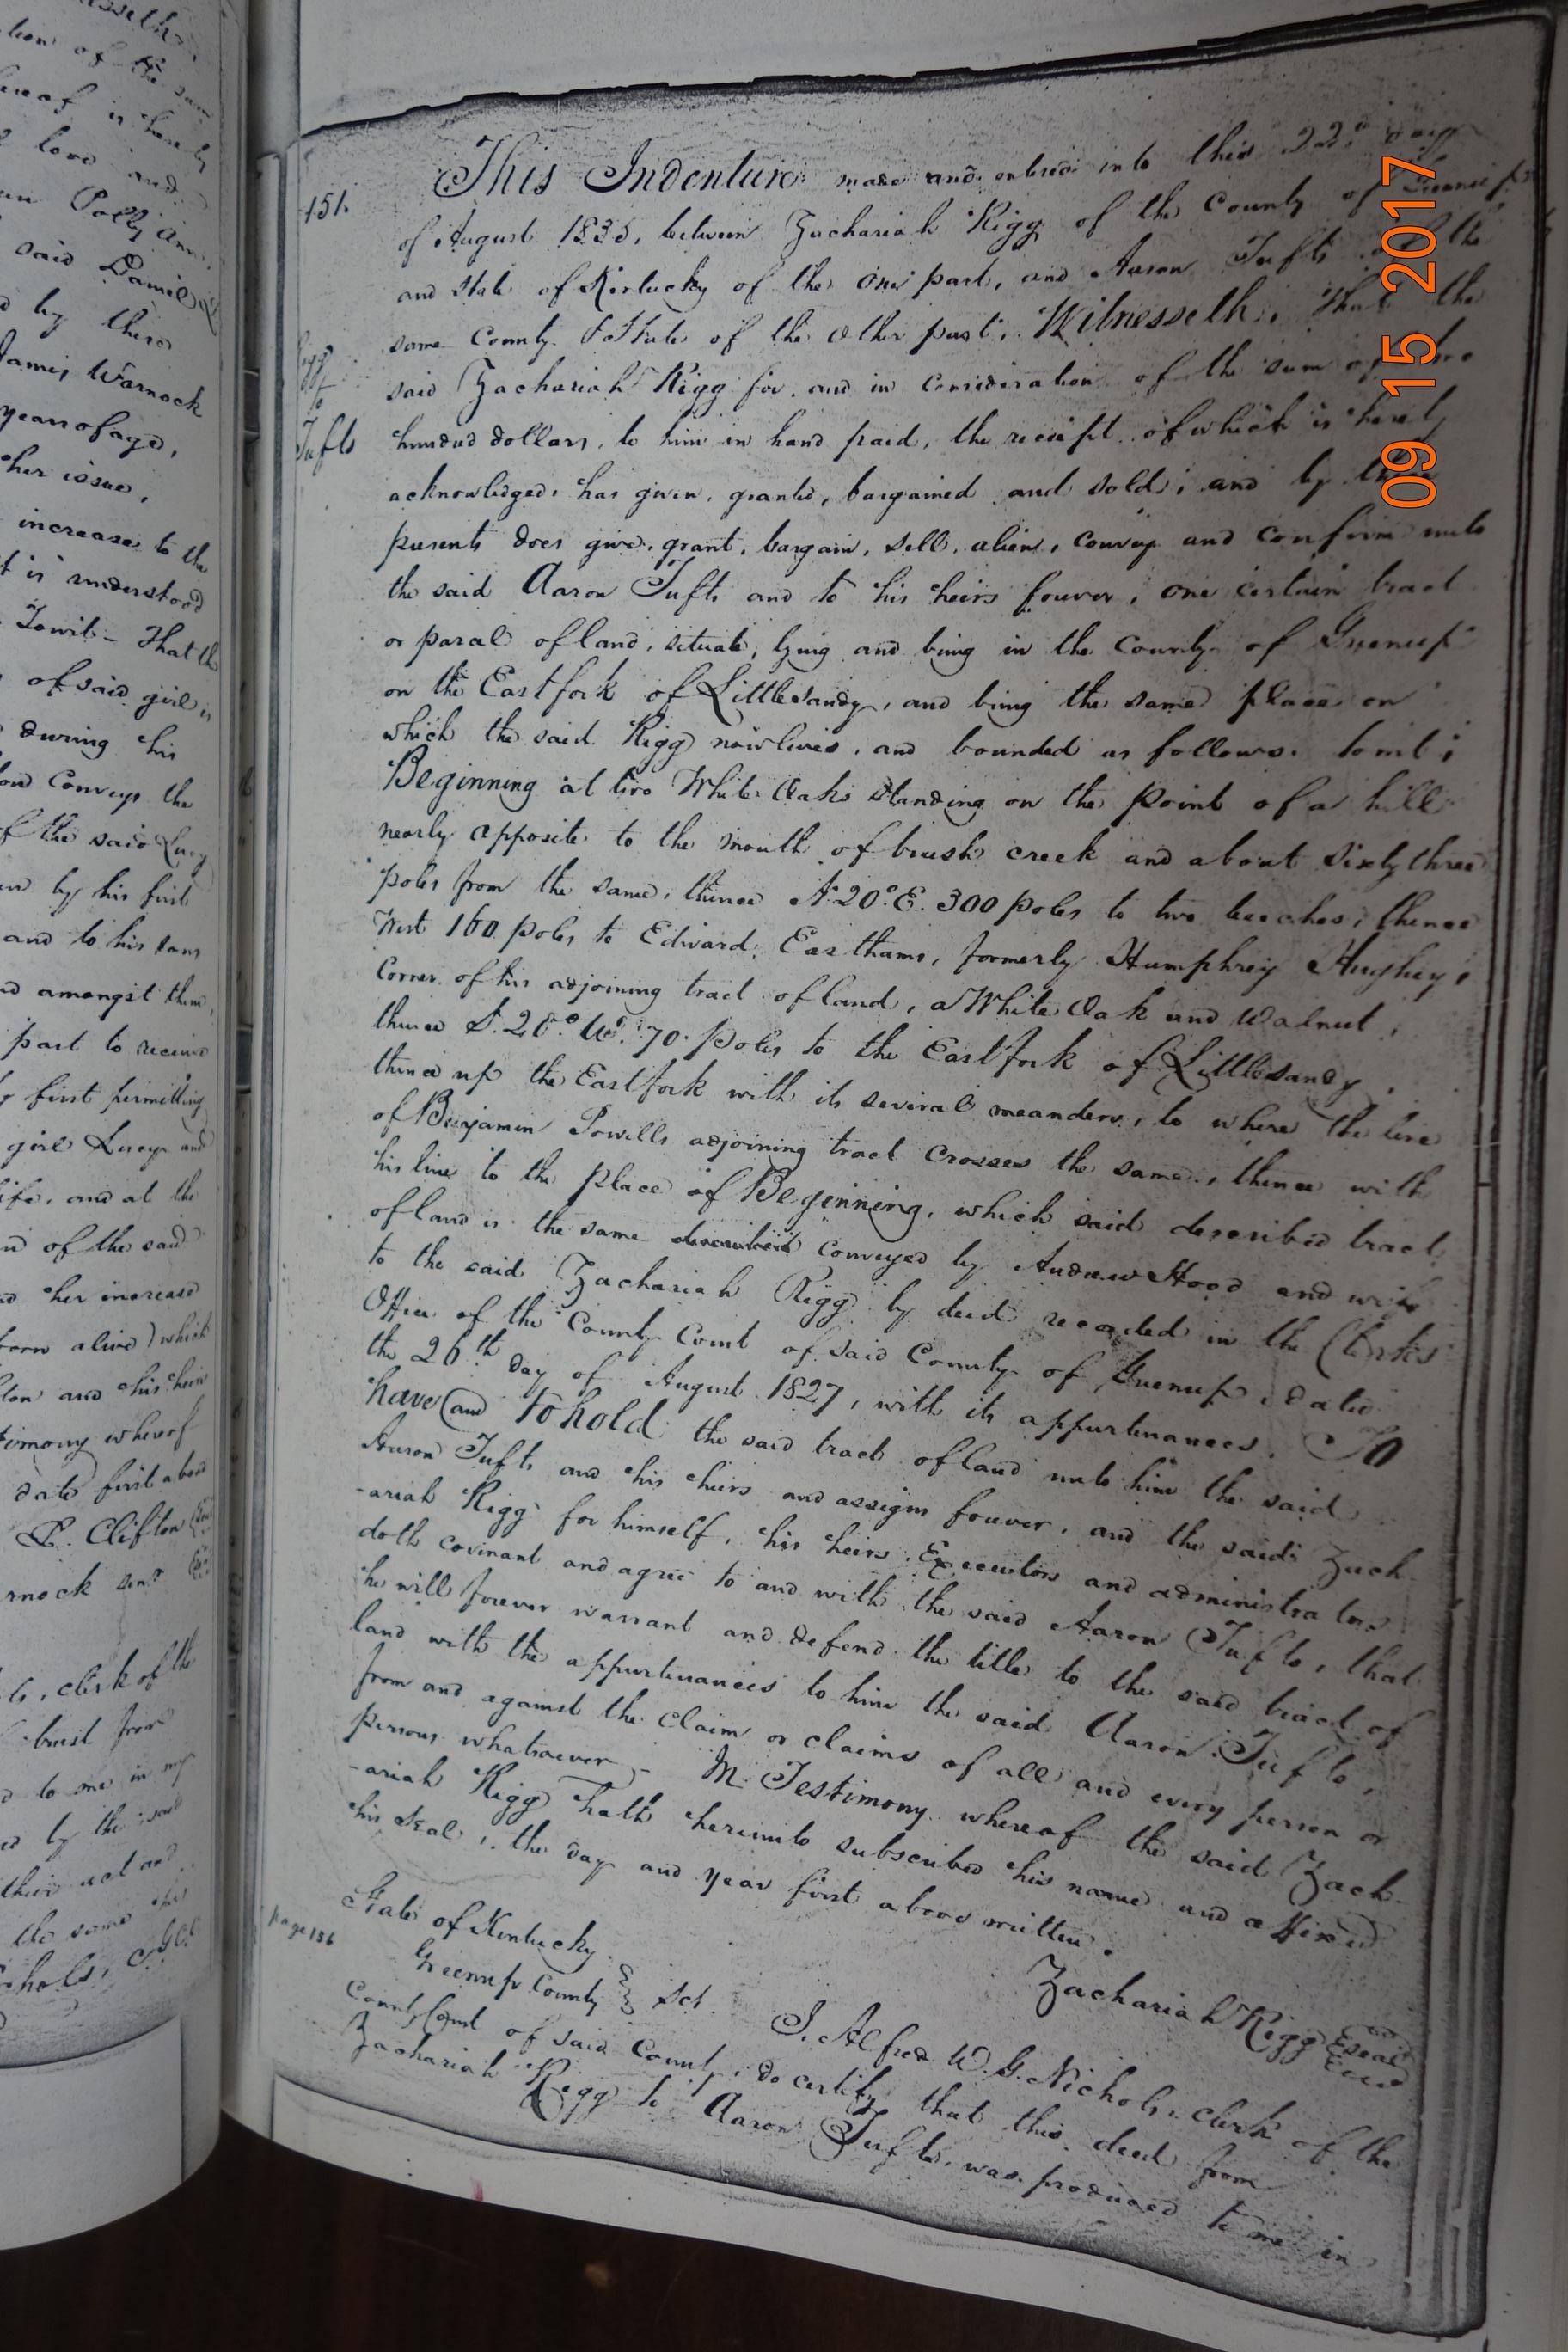 tion of the same
hereof is hereby
love and
Polly Ann
said Daniel
by these
James Warnock
years of age,
her issue,
increase to the
it is understood
Towit - That the
of said girl is
during his
Conveys the
of the said Lucy
by his first
and to his sons
amongst them,
part to receive
first permitting
girl Lucy and
life, and at the
of the said
her increase
born alive) which
and his heirs
whereof
date first above
P. Clifton
clerk of the
from
to me in my
by the said
their act and
the same
09 15 2017
151.
Rigg
to
Tufts
This Indenture made and entered into this 22d day
of August 1835, between Zachariah Rigg of the County of Greenup
and State of Kentucky of the one part, and Aaron Tufts of the
same County & State of the other part, Witnesseth, That the
said Zachariah Rigg for and in consideration of the sum of
hundred dollars, to him in hand paid, the receipt of which is hereby
acknowledged, has given, granted, bargained and sold, and by these
presents does give, grant, bargain, sell, alien, convey and confirm unto
the said Aaron Tufts and to his heirs forever, one certain tract
or parcel of land, situate, lying and being in the County of Greenup
on the East fork of Little sandy, and being the same place on
which the said Rigg now lives, and bounded as follows. towit;
Beginning at two White Oaks standing on the point of a hill
nearly opposite to the mouth of brush creek and about sixty three
poles from the same, thence N. 20° E. 300 poles to two beeches, thence
West 160 poles to Edward Easthams, formerly Humphrey Hughey's
Corner of his adjoining tract of land, a White Oak and Walnut,
thence S. 20° W. 70 poles to the East fork of Little sandy,
thence up the East fork with its several meanders, to where the line
of Benjamin Powells adjoining tract crosses the same, thence with
his line to the place of Beginning, which said described tract
of land is the same conveyed by Andrew Hood and wife
to the said Zachariah Rigg by deed recorded in the Clerks
Office of the County Court of said County of Greenup, dated
the 26th day of August 1827, with its appurtenances. To
have and To hold the said tract of land unto him the said
Aaron Tufts and his heirs and assigns forever, and the said Zach-
-ariah Rigg for himself, his heirs, Executors and administrators
doth covenant and agree to and with the said Aaron Tufts, that
he will forever warrant and defend the title to the said tract of
land with the appurtenances to him the said Aaron Tufts,
from and against the claim or claims of all and every person or
persons whatsoever - In Testimony whereof the said Zach-
-ariah Rigg hath hereunto subscribed his name and affixed
his seal, the day and year first above written.
Zachariah Rigg Seal
page 156
State of Kentucky
Greenup County Sct.
I, Alfred W. G. Nichols, clerk of the
County Court of said County, do certify that this deed from
Zachariah Rigg to Aaron Tufts, was produced to me in